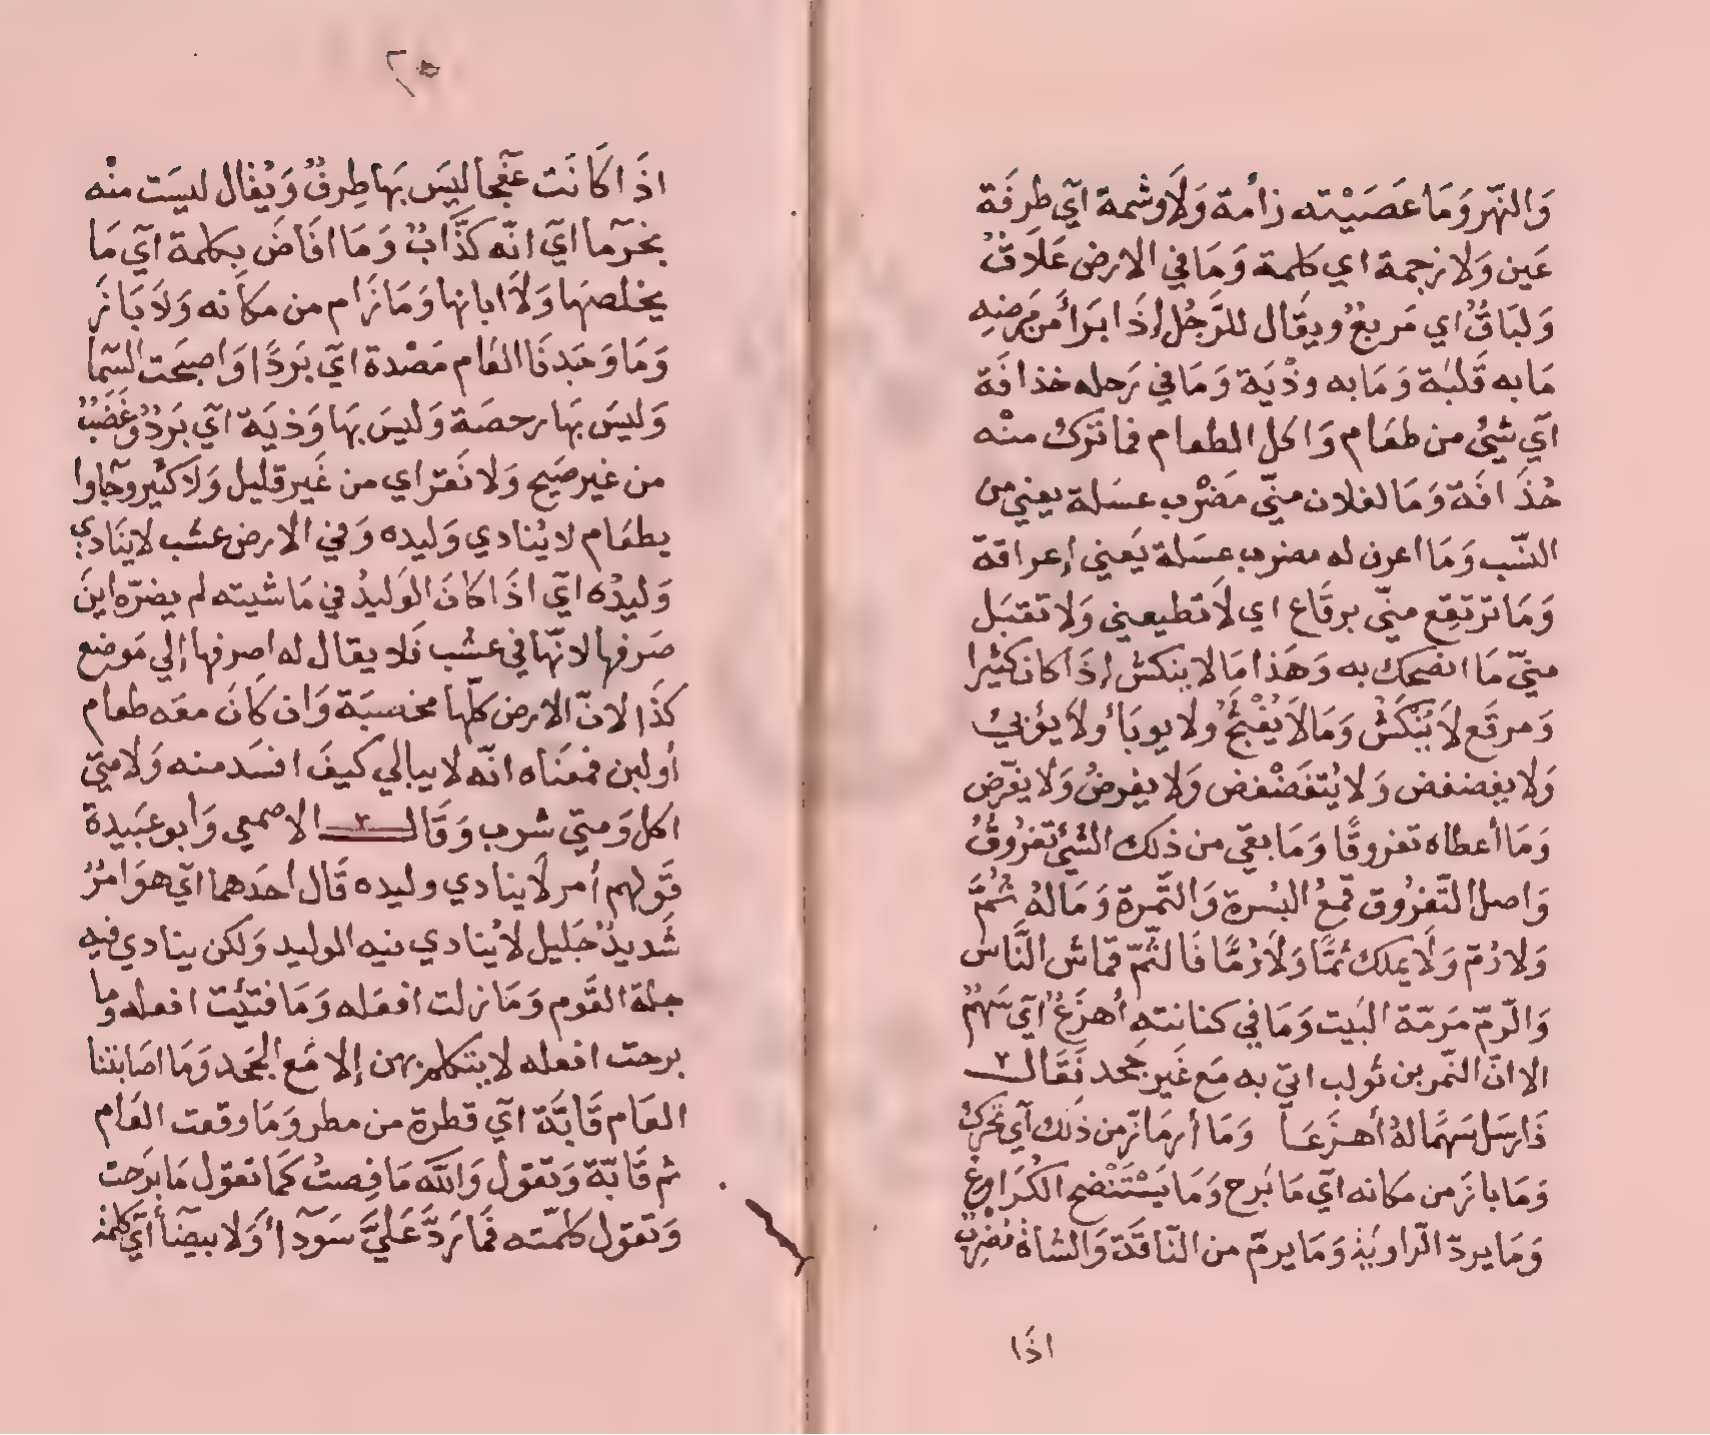 وَالنّهر وَمَا عَصَيْته زأمة وَلَا وشمة آي طرفَة
عَين وَلا زجمة اي كلمة وَمَا في الارض عَلَاقٌ
وَلبَاقٌ اي مَربعٌ ويقَال للرَّجُل إذَا بَرَأ من مَرضهِ
مَا به قَلبَة وَمَا به وذْيَة وَمَا في رَحله خذافَة
آي شيئٌ من طعَام وَاكل الطعام فما ترك منْه
خُذَافَة وَمَا لفلان منيّ مَضْرب عسَلة يعني من
النسّب وَمَا اعرف له مضرب عسَلة يَعني إعراقة
وَمَا ترتَقِع منيّ برقَاع اي لَا تطيعني وَلا تقبَل
منيّ مَا انصحك به وَهَذا مَا لا ينكش إذَا كان كثيرا
وَمرتَع لَا يُنْكَشُ وَمَا لَا يُفْثَجُ ولا يوبَأ ولا يؤبيُ
وَلا يغضغض وَلا يُتغَضْغض وَلا يفرضُ وَلا يغرّض
وَمَا أعطاه تفروقًا وَمَا بقي من ذلك الشئ تفرُوقٌ
وَاصل التَّفرُوق قمعُ البُسرة وَالتّمرة وَمَا لهُ ثُمٌّ
وَلا رُمّ وَلَا يملك ثمًّا وَلَا رُمًّا فَالثّمّ قماش النَّاس
وَالرّمّ مَرمّة البَيت وَمَا في كنانتهِ أهزَعُ آي سَهمٌ
الا انّ النّمر بن تولب اتي به مَع غَير جحد فَقَال
فَارسَل سَهمًا لهُ أهـزَعَـا وَمَا أرمَأزّ من ذلك آي تحرّكَ
وَمَا بازَ من مكانه آي مَا بَرح وَمَا يَسْتَنْضج الكُرَاعَ
وَمَا يردّ الرّاويَة وَمَا يرمّ من النّاقَة وَالشاة مَضْرِبٌ
اذَا
٢٥
اذَا كَانَت عَجفا ليسَ بَها طِرقٌ وَيُقال ليسَت منْه
بخرما آي انّه كذَّابٌ وَمَا افَاضَ بكلمة آي مَا
يخلصهَا وَلَا ابانها وَمَا رَام من مكَانه وَلَا بَازَ
وَمَا وَجَدنَا العَام مَصْدة اي بَردًا وَاصبحَت السّما
وَليسَ بَها رحصَة وَليسَ بَها وَذيَة آي بَردٌ وغَضَبٌ
من غير صَيح وَلا نَفر اي من غَير قليل وَلا كثير وجَاوا
بطعَام لا يُنادي وَليده وَفي الارض عشب لا يُنَادي
وَليدُه آي اذَا كَانَ الوَليدُ في مَاشيته لم يضرّه اينَ
صَرفها لانّها في عشب فَلا يقال له اصرفها إلي مَوضع
كذَا لانّ الارض كلّها مخصبَة وَان كَانَ معَه طعام
أو لبن فمعنَاه انّه لا يبالي كيفَ افسَد منه وَلا متيَ
اكل وَمتي شرب وَقَالـــ الاصمعي وَابو عبَيدة
قَولهم أمر لَا ينادي وليده قَال احَدهما آي هوَ امرٌ
شَديدٌ جَليل لَا يُنادي فيه الوليد وَلكن ينادي فيهِ
جلة القَوم وَمَا زلت افعَله وَمَا فتيَت افعله وما
برحت افعله لا يتكلم بهن إلا مَع الجحَد وَمَا اصَابتنا
العَام قَابَّة آي قطرة من مطر وَمَا وقعت العَام
ثم قَابّة وَتقول وَاللّٰه مَا فِصتُ كمَا تقول مَا بَرحت
وَتقول كلّمته فمَا رَدَّ عَليَّ سَودآ وَلا بيضَآ آي كلمة